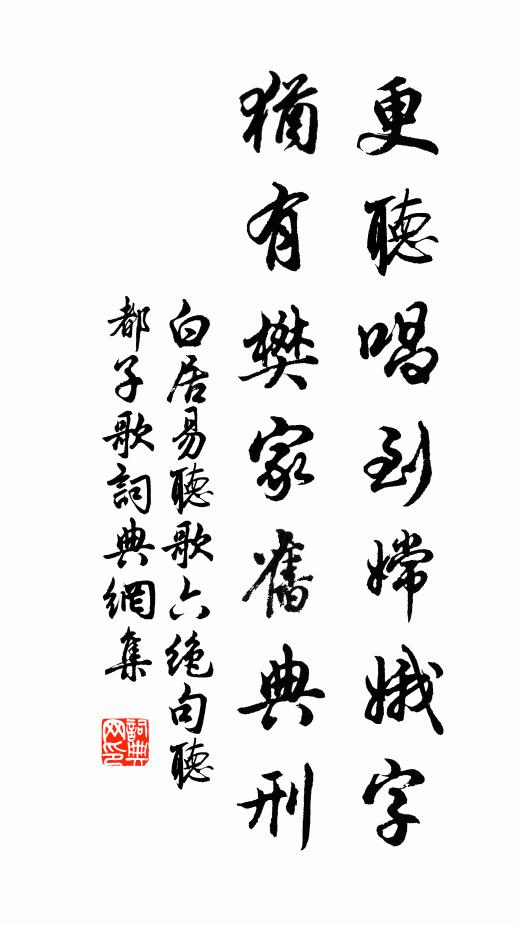 更聽唱到嫦娥字
猶有樊家舊典刑
白居易聽歌六絕句聽
都子歌詞典網集
詞典
网印